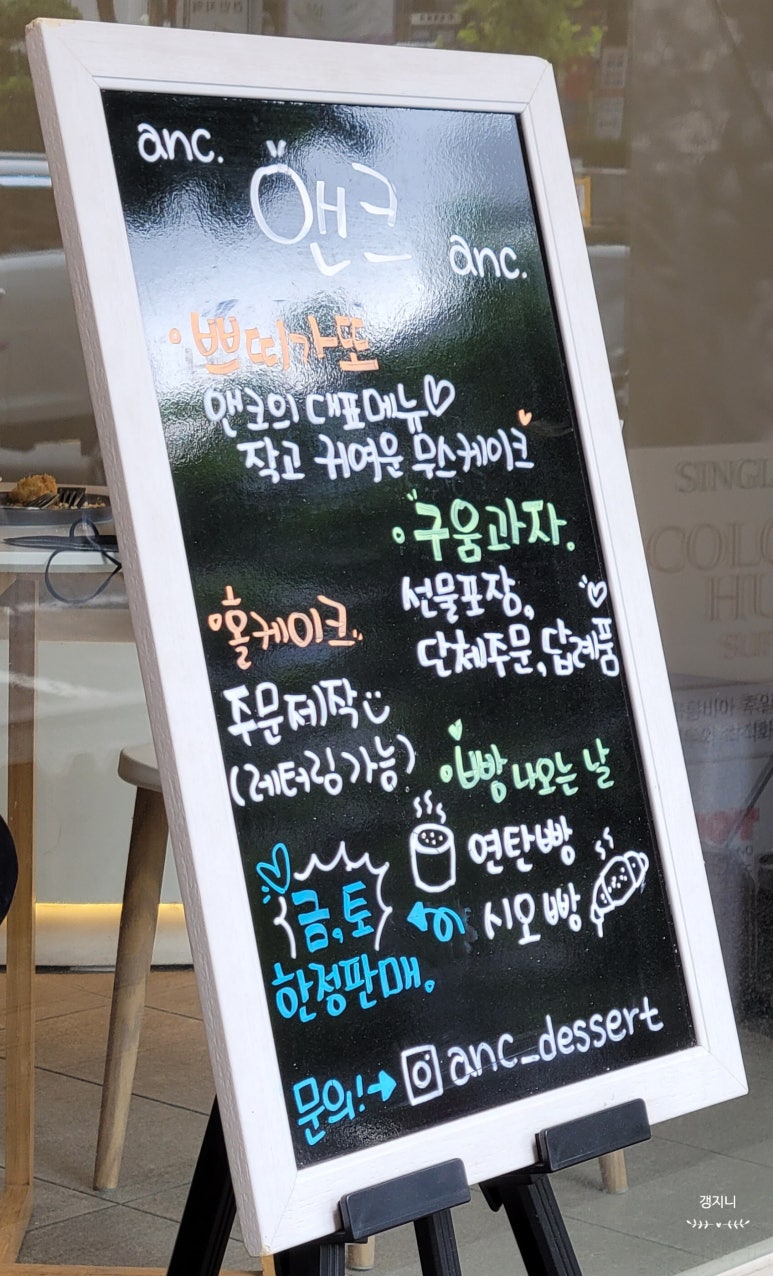 anc.
앤크
anc.
쁘띠가또
앤크의 대표메뉴
작고 귀여운 무스케이크
구움과자.
선물포장,
단체주문, 답례품
홀케이크.
주문제작
(레터링가능)
빵 나오는 날
연탄빵
시오빵
금,토
한정판매.
문의! → anc_dessert
SINGL
COLO
HU
SUP
갱지니